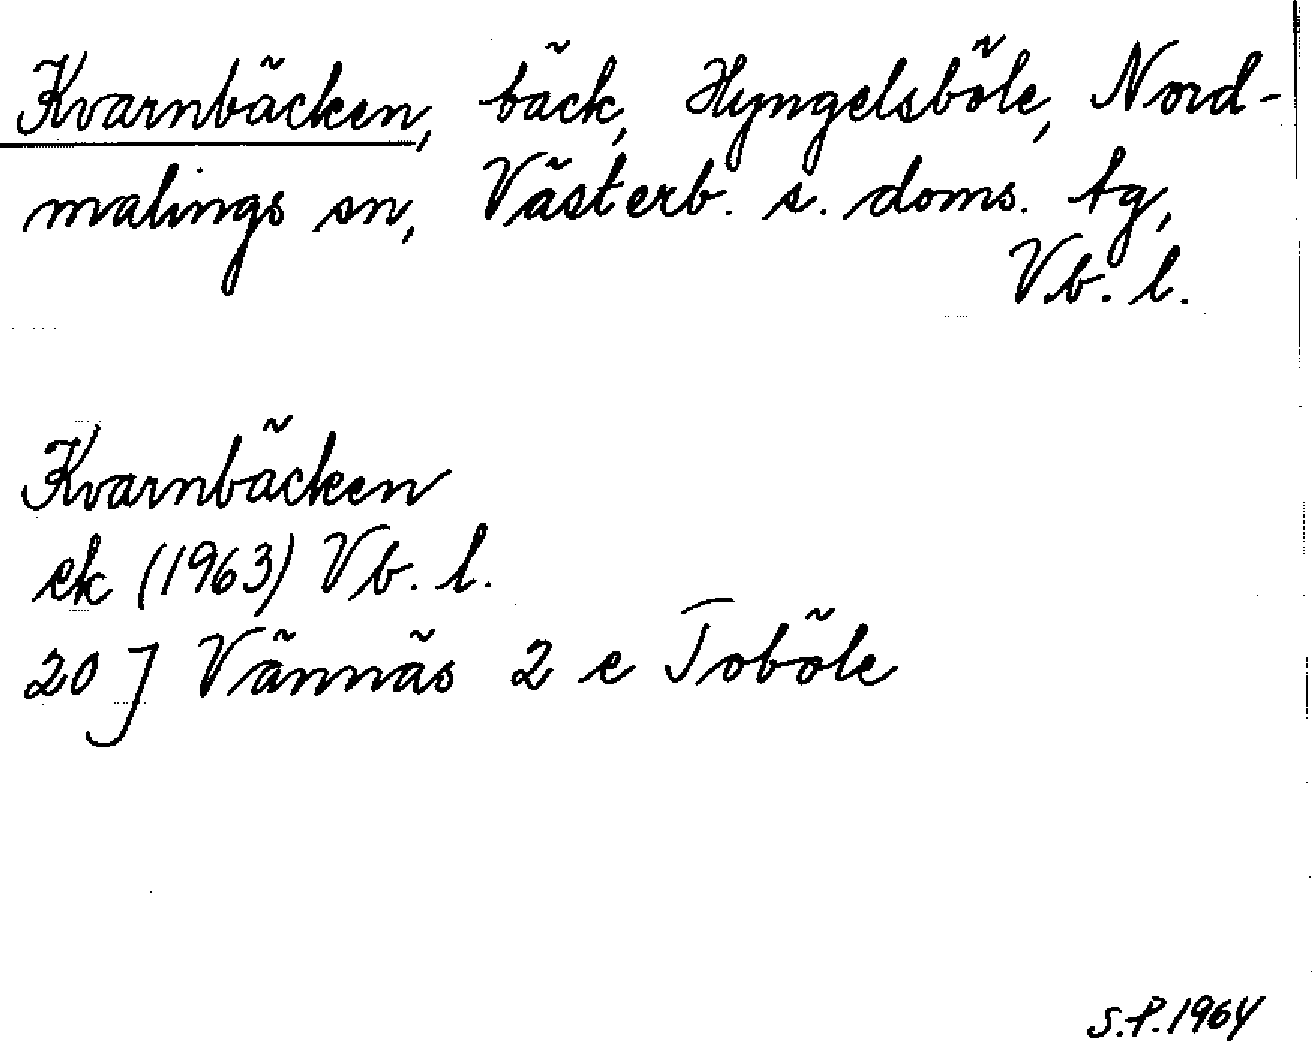 Kvarnbäcken, bäck, Hyngelsböle, Nord-
malings sn, Västerb. s. doms. tg,
Vb. l.
Kvarnbäcken
ek (1963) Vb. l.
20 J Vännäs 2 e Toböle
S.P. 1964